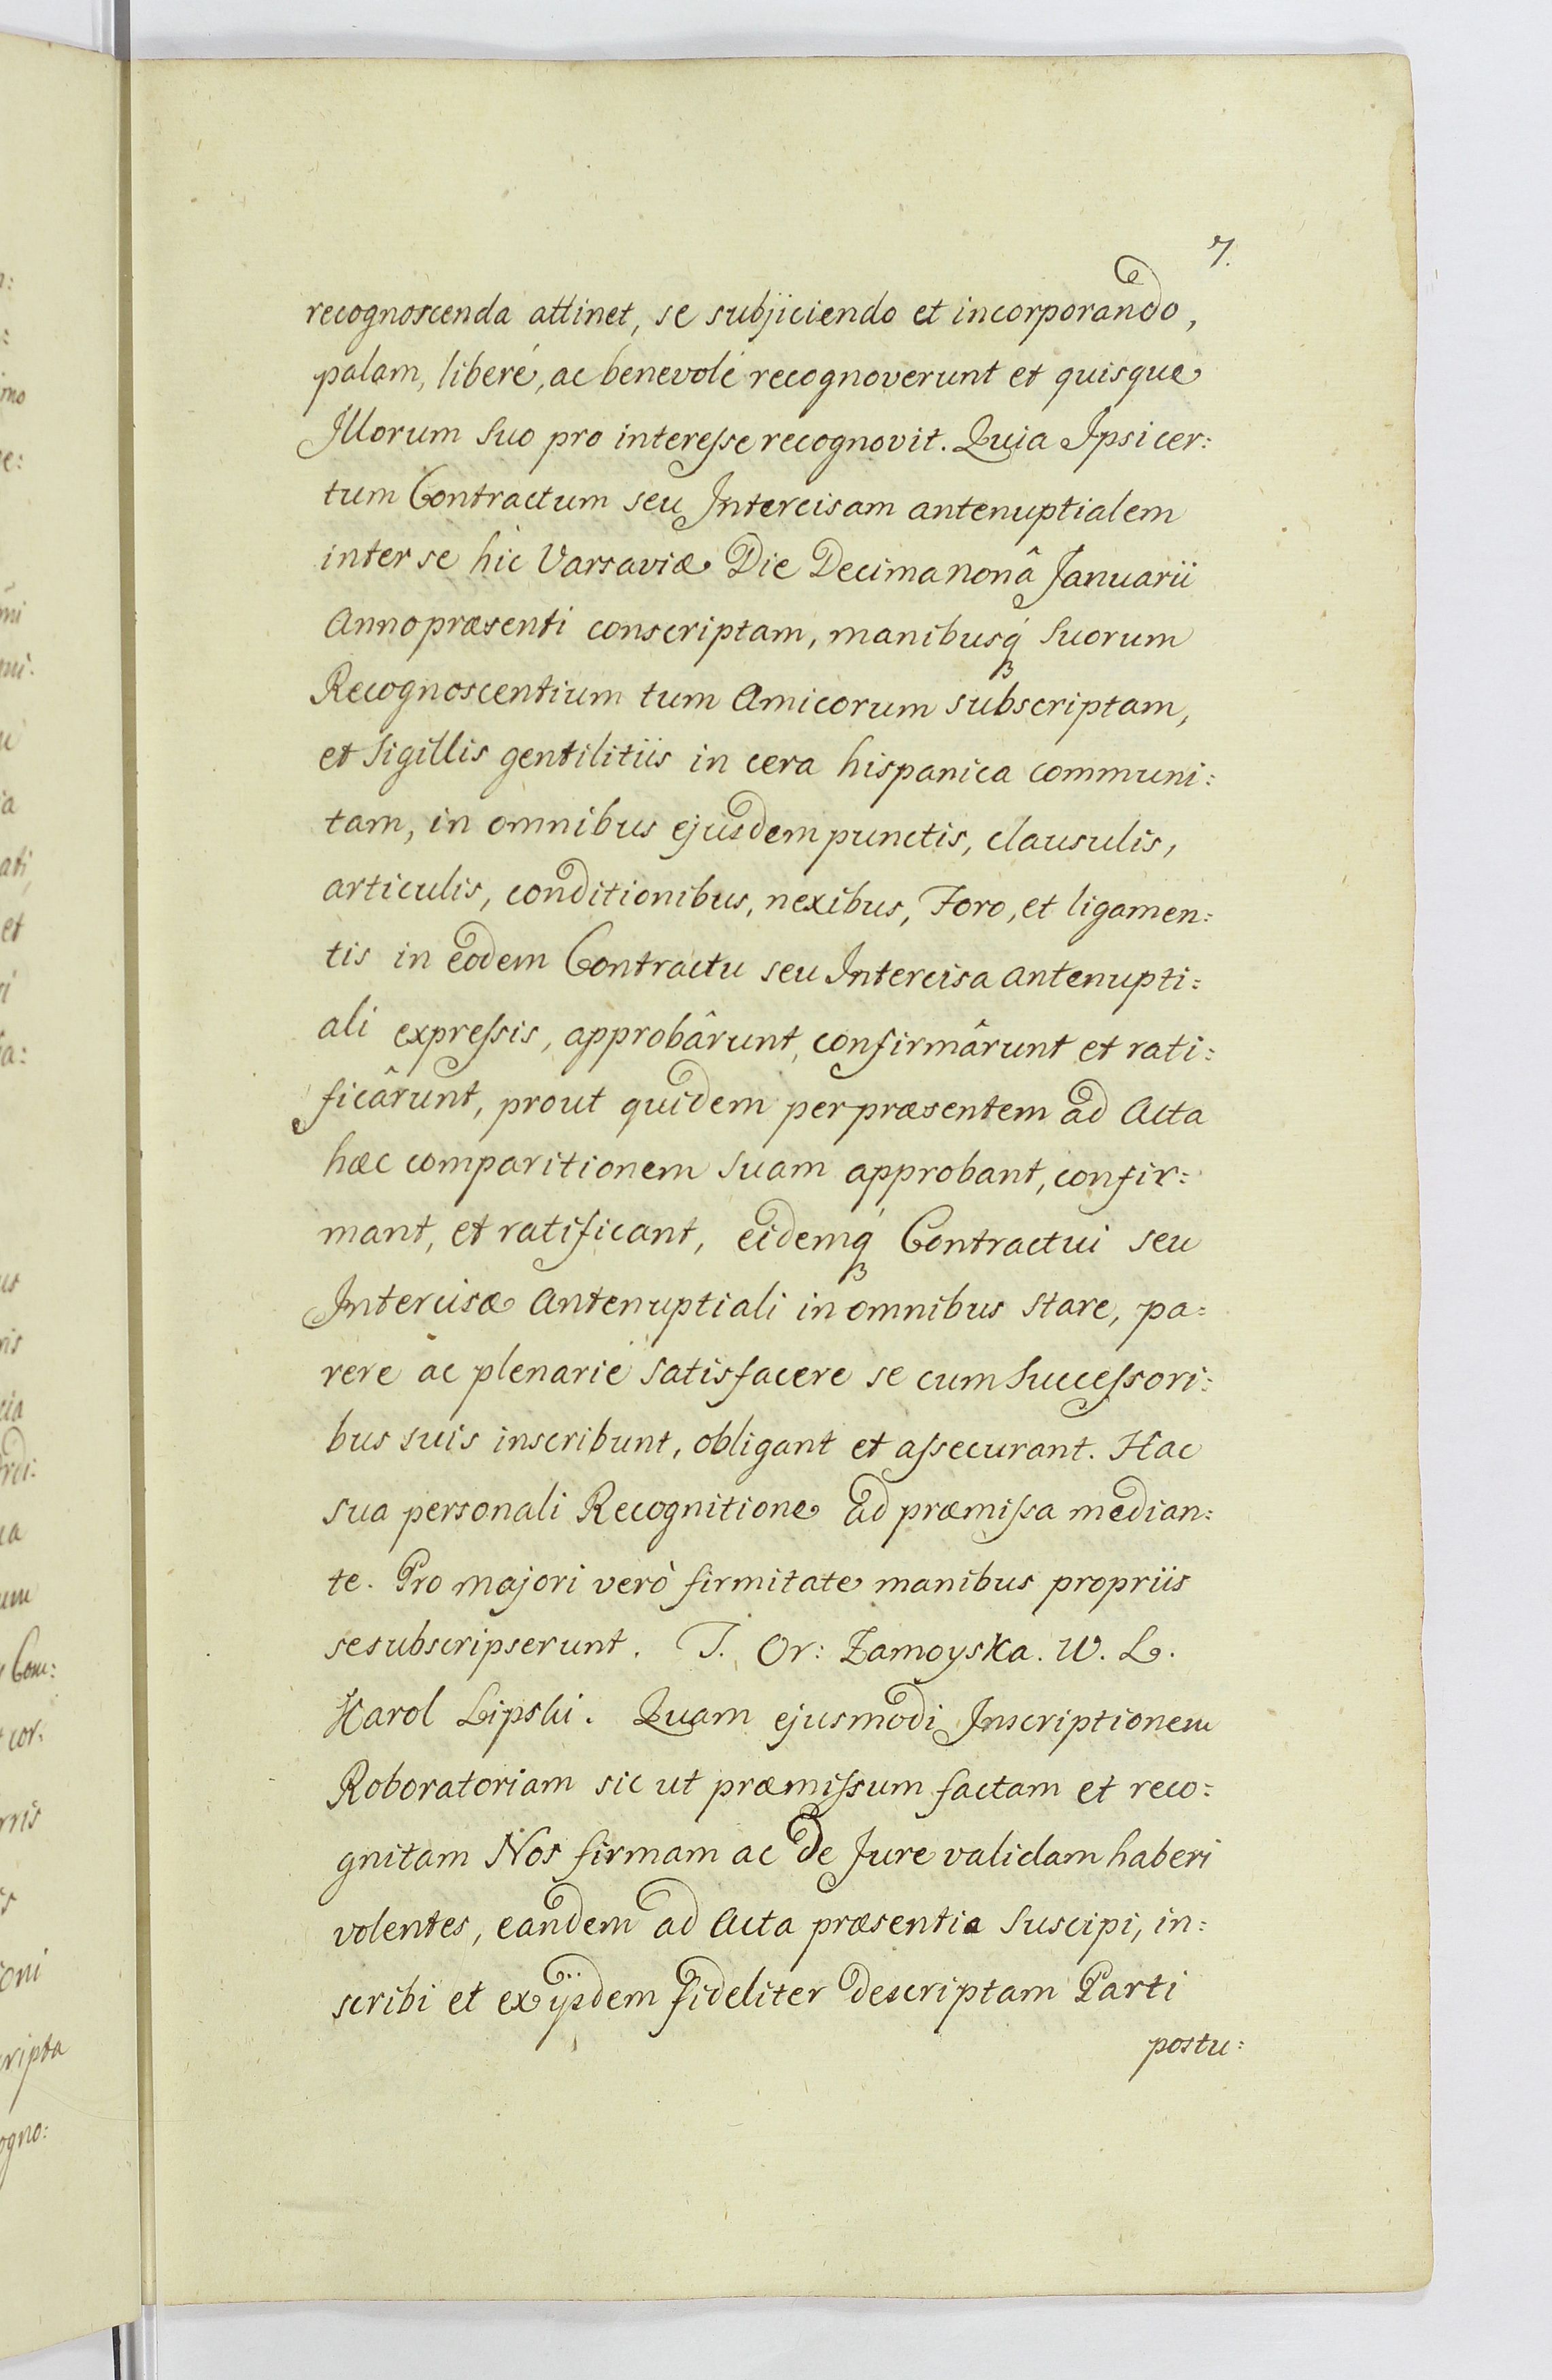 7.
recognoscenda attinet, se subjiciendo et incorporando,
palam, liberé, ac benevolé recognoverunt et quisque
Illorum suo pro interesse recognovit. Quia Ipsi cer:
tum Contractum seu Intercisam antenuptialem
inter se hic Varsaviæ Die Decima nonâ Januarii
Anno præsenti conscriptam, manibusq́ suorum
Recognoscentium tum Amicorum subscriptam,
et Sigillis gentilitiis in cera hispanica communi:
tam, in omnibus ejusdem punctis, clausulis,
articulis, conditionibus, nexibus, Foro, et ligamen:
tis in eodem Contractu seu Intercisa antenupti:
ali expressis, approbârunt, confirmârunt et rati:
ficârunt, prout quidem per præsentem ad Acta
hæc comparitionem suam approbant, confir:
mant, et ratificant, eidemq́ Contractui seu
Intercisæ Antenuptiali in omnibus stare, pa:
rere ac plenarié satisfacere se cum Successori:
bus suis inscribunt, obligant et assecurant. Hac
sua personali Recognitione ad præmissa median:
te. Pro majori verò firmitate manibus propriis
se subscripserunt. T. Or: Zamoyska. W. L.
Karol Lipski. Quam ejusmodi Inscriptionem
Roboratoriam sic ut præmissum factam et reco:
gnitam Nos firmam ac de Jure validam haberi
volentes, eandem ad Acta præsentia suscipi, in:
scribi et ex ijsdem fideliter descriptam Parti
postu: